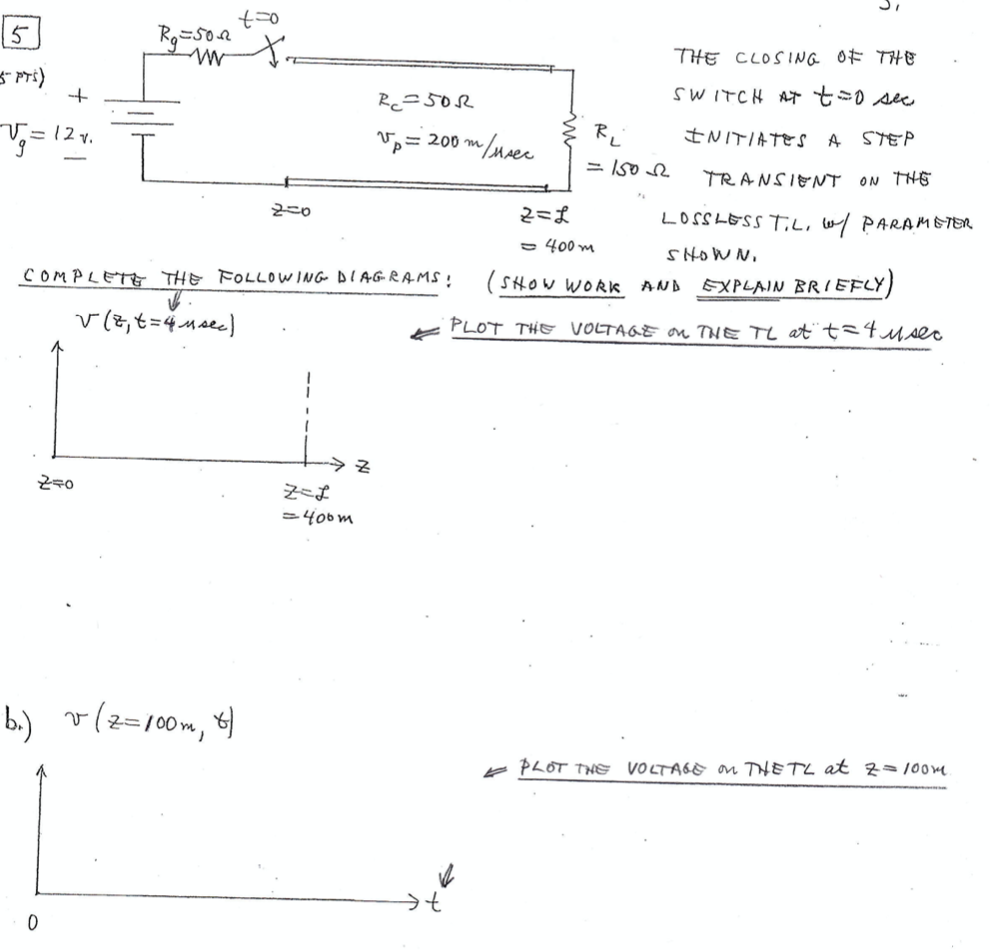 5.
5
5 PTS)
Rg=50Ω
t=0
+
Vg=12 v.
Rc=50Ω
vp=200 m/μsec
RL
=150 Ω
z=0
z=ℒ
=400m
THE CLOSING OF THE
SWITCH AT t=0 sec
INITIATES A STEP
TRANSIENT ON THE
LOSSLESS T.L. w/ PARAMETER
SHOWN.
COMPLETE THE FOLLOWING DIAGRAMS: (SHOW WORK AND EXPLAIN BRIEFLY)
v(z,t=4μsec)
⇐ PLOT THE VOLTAGE on THE TL at t=4μsec
z
z=0
z=ℒ
=400m
b.) v(z=100m, t)
⇐ PLOT THE VOLTAGE on THE TL at z=100m
t
0